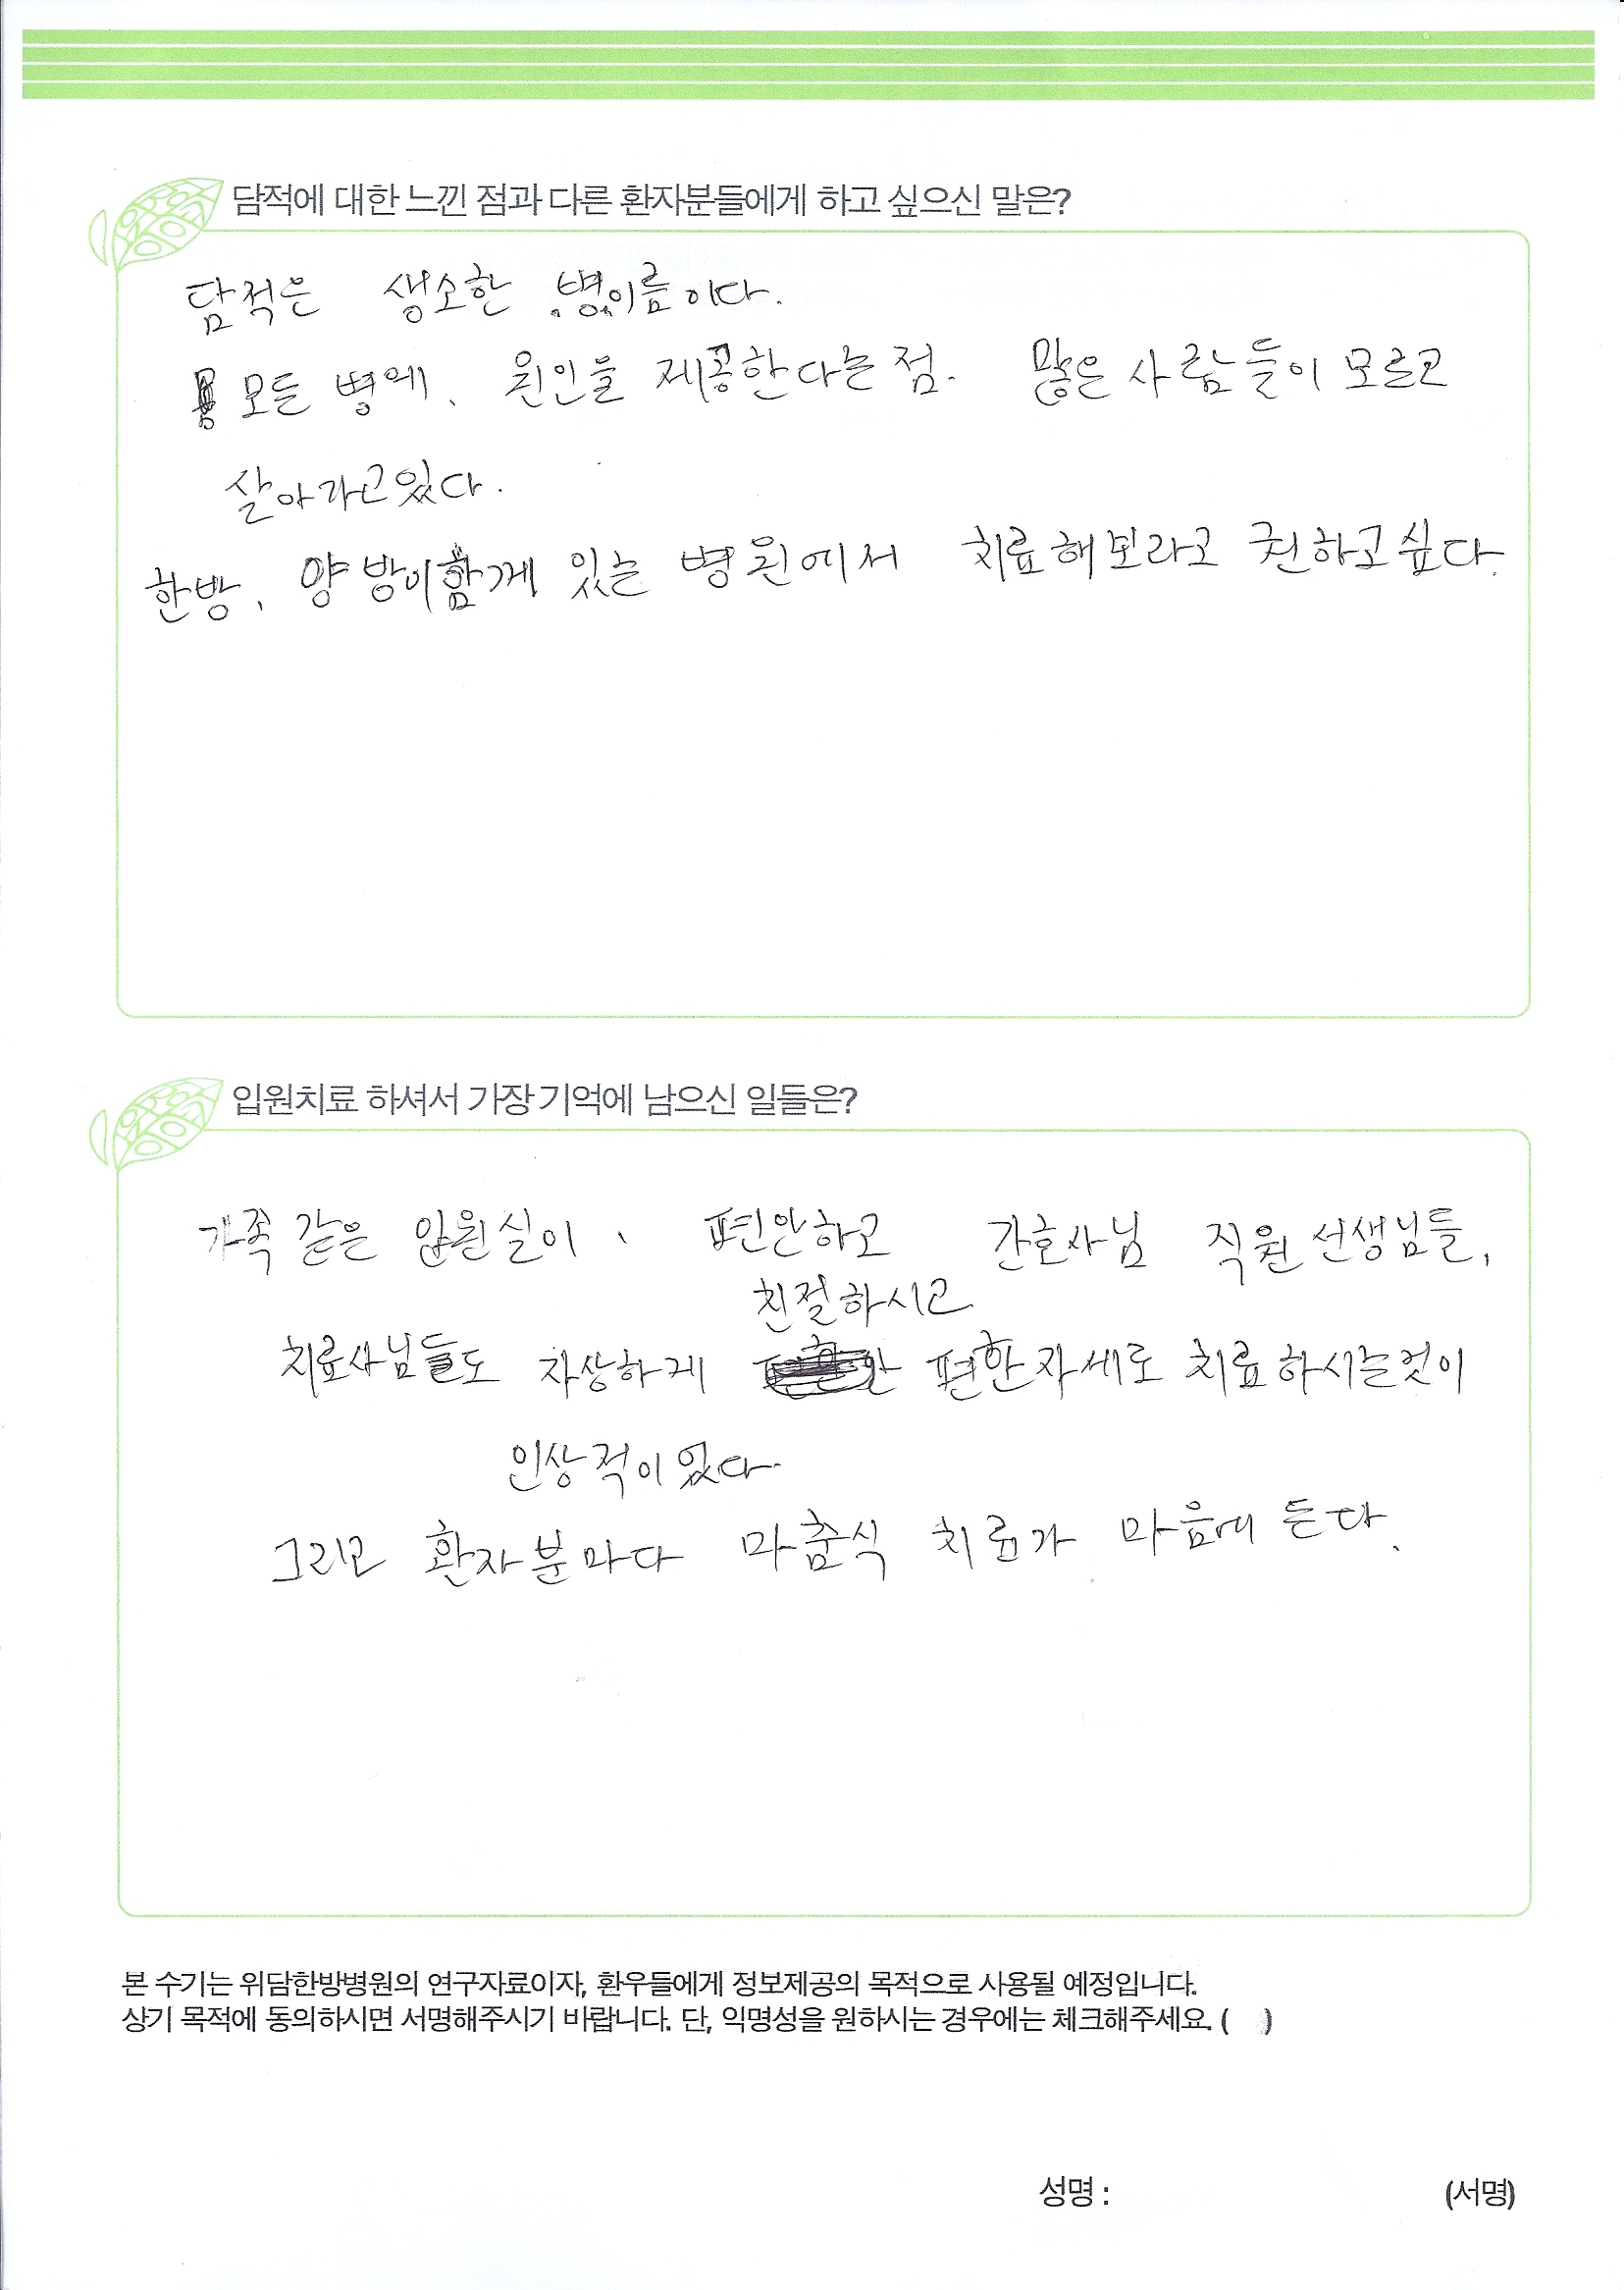 담적에 대한 느낀 점과 다른 환자분들에게 하고 싶으신 말은?
담적은 생소한 병이름이다.
모든 병에, 원인을 제공한다는 점. 많은 사람들이 모르고
살아가고있다.
한방, 양방이함께 있는 병원에서 치료해보라고 권하고싶다.
입원치료 하셔서 가장 기억에 남으신 일들은?
가족 같은 입원실이, 편안하고 간호사님 직원선생님들,
친절하시고
치료사님들도 자상하게 편한자세로 치료하시는것이
인상적이였다.
그리고 환자분마다 마춤식 치료가 마음에 든다.
본 수기는 위담한방병원의 연구자료이자, 환우들에게 정보제공의 목적으로 사용될 예정입니다.
상기 목적에 동의하시면 서명해주시기 바랍니다. 단, 익명성을 원하시는 경우에는 체크해주세요. ( )
성명 : (서명)